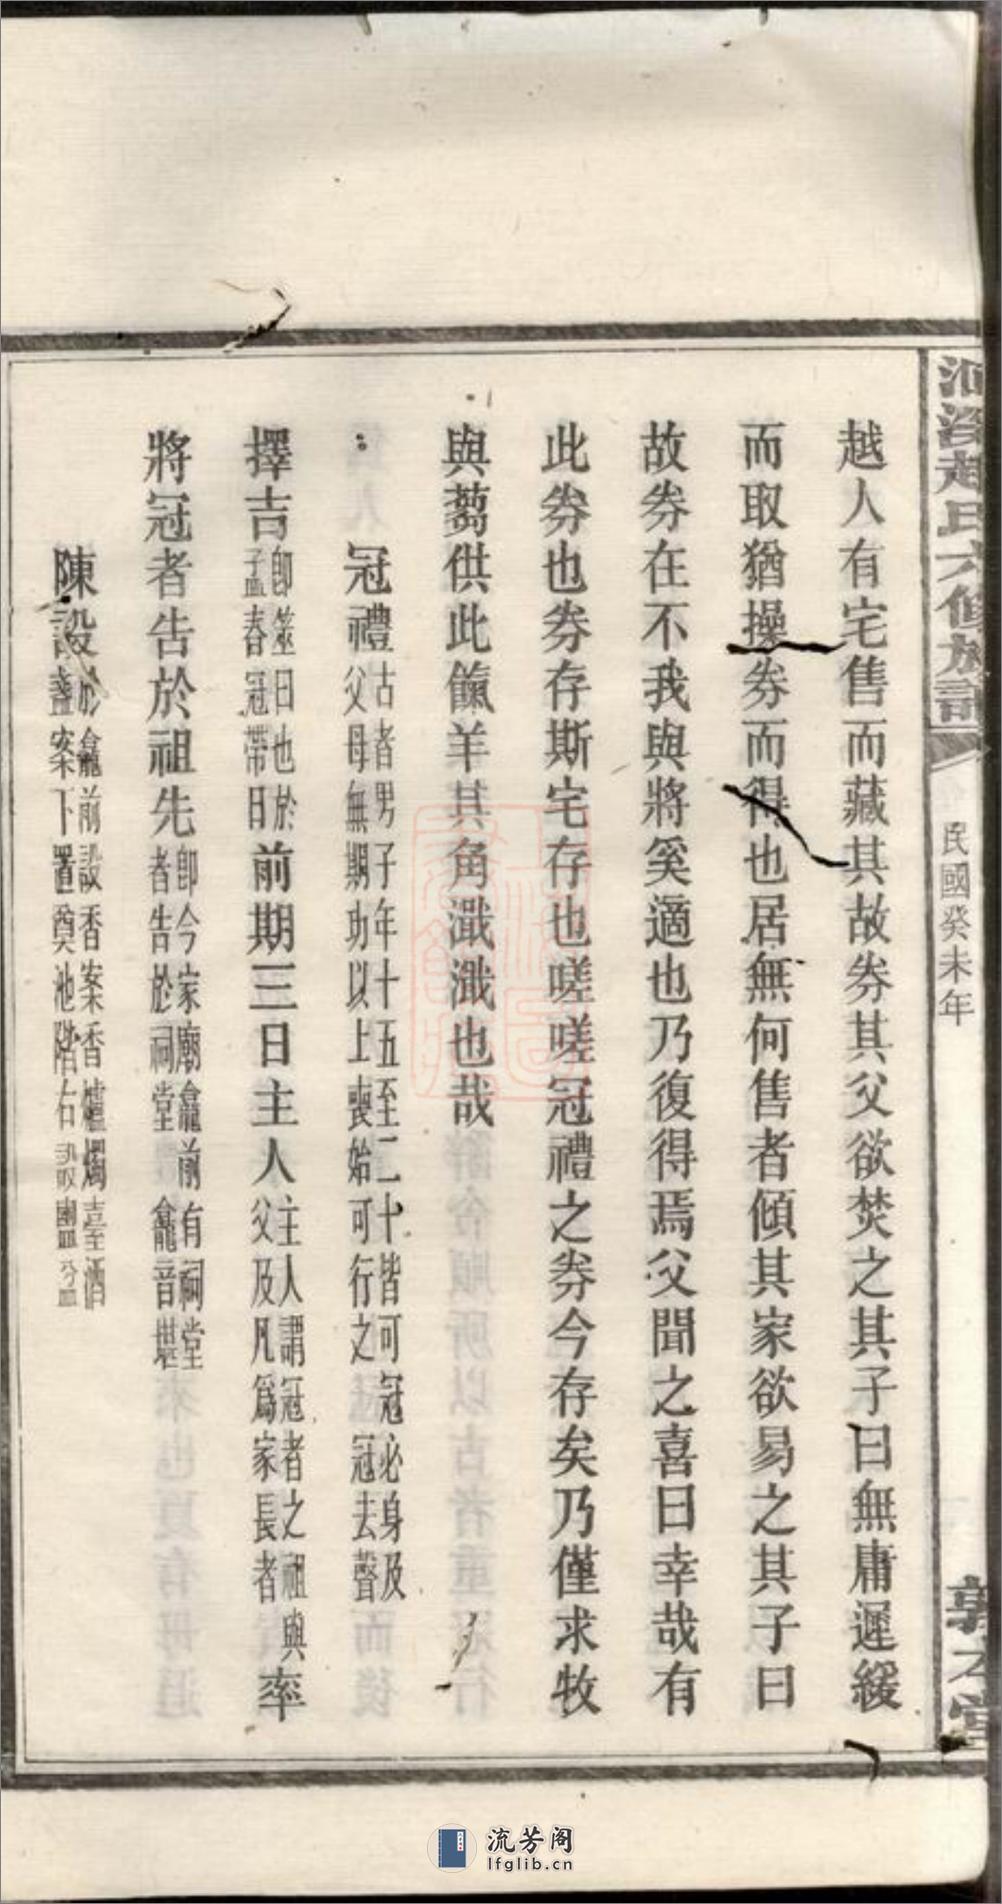 趙氏六修族譜
民國癸未年
敦本堂
越人有宅售而藏其故券其父欲焚之其子曰無庸遲緩
而取猶操券而得也居無何售者傾其家欲易之其子曰
故券在不我與將奚適也乃復得焉父聞之喜曰幸哉有
此券也券存斯宅存也嗟嗟冠禮之券今存矣乃僅求牧
與蒭供此餼羊其角濈濈也哉
冠禮古者男子年十五至二十皆可冠必身及父母無期功以上喪始可行之冠去聲
擇吉卽筮日也於孟春冠帶日前期三日主人主人謂冠者之祖與父及凡爲家長者率
將冠者告於祖先卽今家廟龕前有祠堂者告於祠堂龕
陳設於龕前設香案香爐燭臺酒盞案下置奠池階右
流芳阁
lfglib.cn